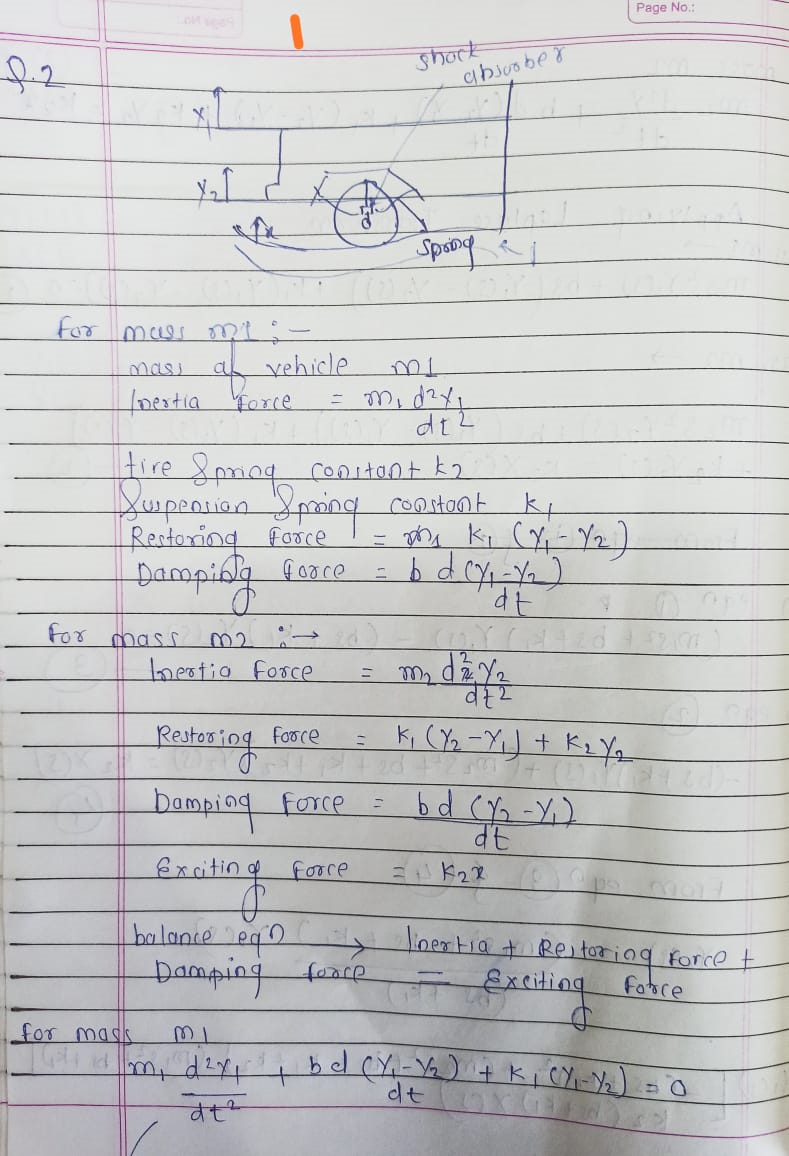 Page No.:
1
Q.2
shock
absorber
X1
Y2
x
Spring
for mass m1 :-
mass of vehicle m1
Inertia Force = m1 d²y1
dt2
tire Spring constant k2
Suspension Spring constant k1
Restoring force = k1 (Y1 - Y2)
Damping force = b d (Y1-Y2)
dt
for mass m2 :→
Inertia Force = m2 d² Y2
dt2
Restoring force = K1 (Y2 - Y1) + K2 Y2
Damping Force = b d (Y2 - Y1)
dt
Exciting force = K2x
balance eqn → Inertia + Restoring force +
Damping force = Exciting force
for mass m1
m1 d2Y1 + b d (Y1-Y2) + K1 (Y1-Y2) = 0
dt2 dt